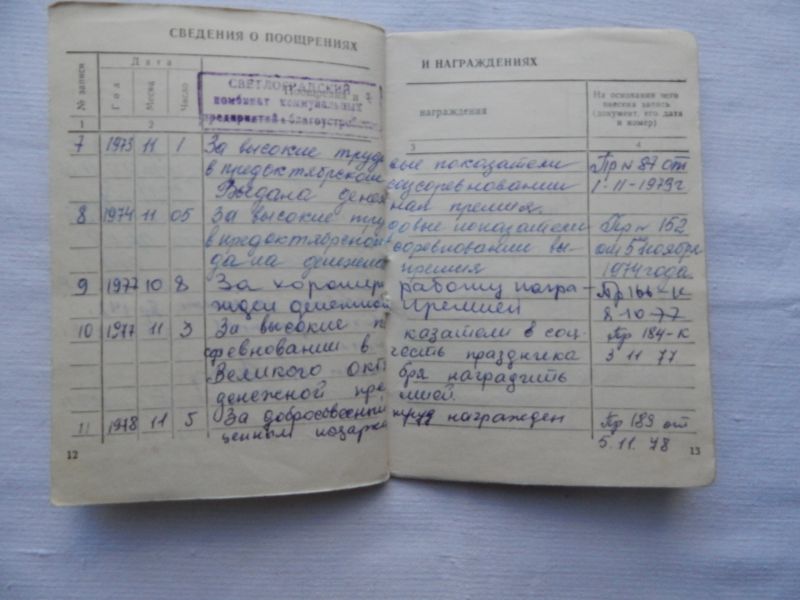 СВЕДЕНИЯ О ПООЩРЕНИЯХ И НАГРАЖДЕНИЯХ
№ записи Дата Поощрения и награждения На основании чего внесена запись (документ, его дата и номер)
Год Месяц Число
СВЕТЛОГРАДСКИЙ
комбинат коммунальных
предприятий и благоустройства
1 2 3 4
7 1973 11 1 За высокие трудовые показатели Пр № 87 от
в предоктябрьском соцсоревновании 1-11-1973г
Выдана денежная премия.
8 1974 11 05 За высокие трудовые показатели Пр № 152
в предоктябрьской соревновании вы- от 5 ноября
дала денежная премия 1974 года
9 1977 10 8 За хорошую работу награ- Пр 166-к
жден денежной премией 8-10-77
10 1977 11 3 За высокие показатели в соц Пр 184-к
соревновании в честь праздника 3 11 77
Великого октября наградить
денежной премией.
11 1978 11 5 За добросовестный труд награжден Пр 189 от
ценным подарком 5.11.78
12 13